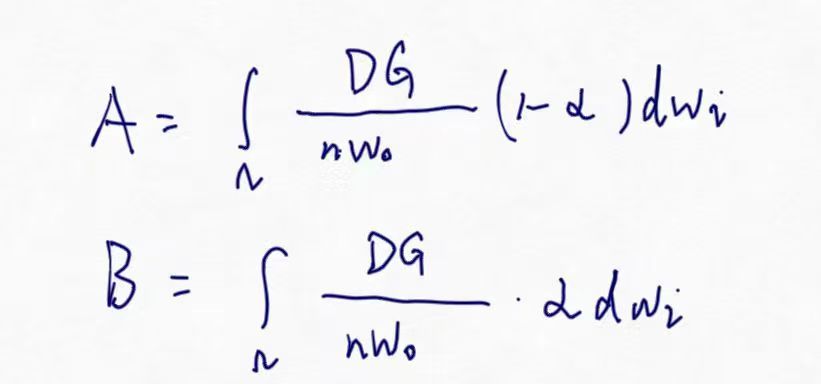 A = ∫_N DG/(nw₀) (1-α) dwi
B = ∫_N DG/(nw₀) · α dwi